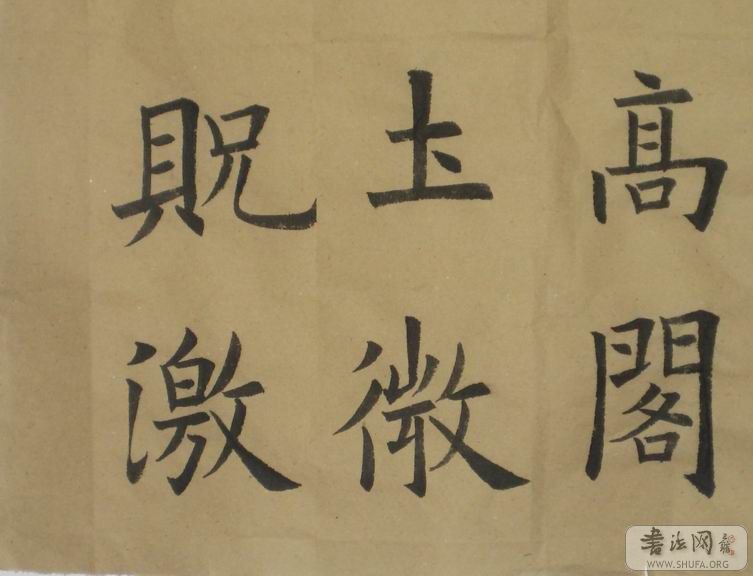 髙閣
圡微
貺激
書法网
WWW.SHUFA.ORG